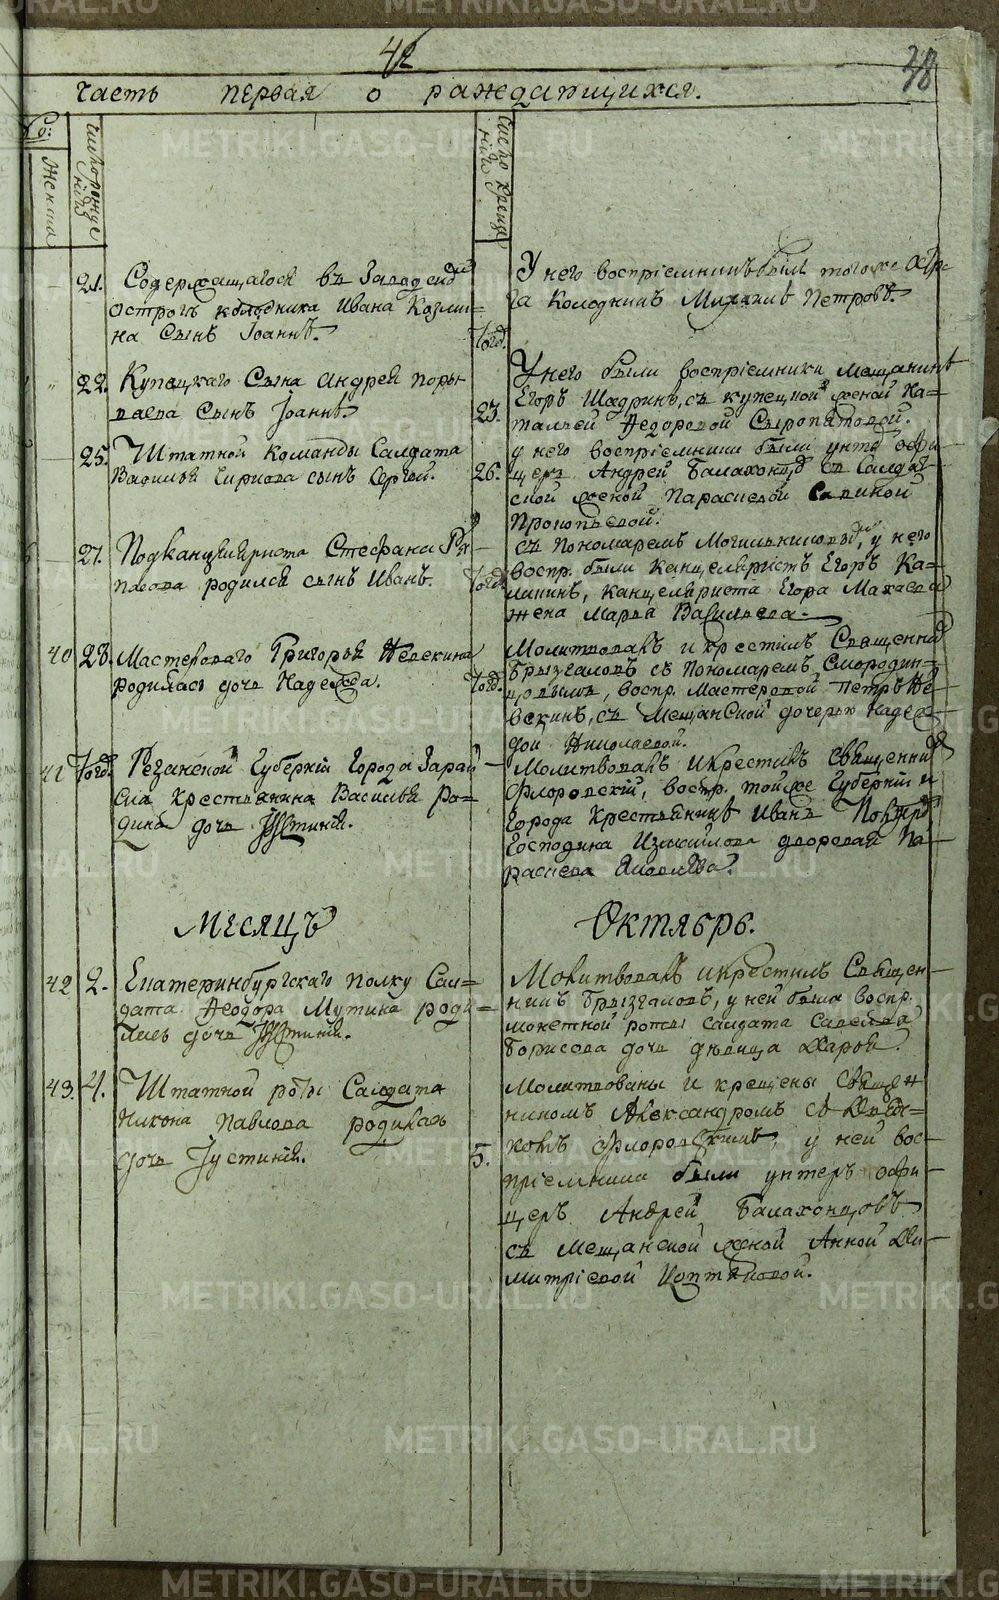 42
38
часть первая о раждающихся.
Женска
число рожденiя
число крещенiя
21. Содержащагося въ
острогѣ колодника Ивана Козми=
на сынъ Iоаннъ.
Тогд.
У него воспрiемникъ былъ тогоже остро-
га колодникъ Михаилъ Петровъ.
22. Купецкаго сына Андрея
сынъ Iоаннъ
23.
У него были воспрiемники мещанинъ
Егоръ Шадринъ, съ купецкой женой На=
тальей Ѳедоровой Сыропятовой.
25. Штатной команды салдата
Василья сынъ Сергѣй.
26.
у него воспрiемники были унтеръ офи-
церъ Андрей Балахонцовъ съ салдат-
ской женой Параскевой Савиной
Прокопьевой.
27. Подканцеляриста Стефана
родился сынъ Иванъ.
Тогд.
съ пономаремъ у него
воспр. были канцеляристъ Егоръ Ка=
лининъ, канцеляриста Егора Махаева
жена Марья Васильева.
40 28. Мастероваго Григорья Невекина
родилась дочь Надежда.
Тогд.
Молитвовалъ и крестилъ Священникъ
Брызгаловъ съ пономаремъ Смородин=
цовымъ, воспр. мастеровой Петръ Не-
векинъ, съ мещанской дочерью Надеж-
дой Николаевой.
41 Тогд. Резанской губернiи города Зарай-
ска крестьянина Василья Ро=
дина дочь Iустинiя.
Молитвовалъ и крестилъ священникъ
Флоровскiй, воспр. тойже губернiи и
города крестьянинъ Иванъ
господина Измайлова дворовая Па-
раскева Яковлева.
Месяцъ Октябрь.
42 2. Екатеринбургскаго полку сал=
дата Ѳеодора Мутина роди=
лась дочь Iустинiя.
Молитвовалъ и крестилъ Священ-
никъ Брызгаловъ, у ней была воспр.
монетной роты салдата Савелья
Борисова дочь девица Дарья.
43. 4. Штатной роты Салдата
Никона Павлова родилась
дочь Iустинiя.
5.
Молитвованы и крещены священ
никомъ Александромъ съ Дья=
комъ Флоровскимъ, у ней вос-
прiемники были унтеръ офи-
церъ Андрей Балахонцовъ
съ мещанской женой Анной Ди-
митрiевой Коптяковой.
METRIKI.GASO-URAL.RU